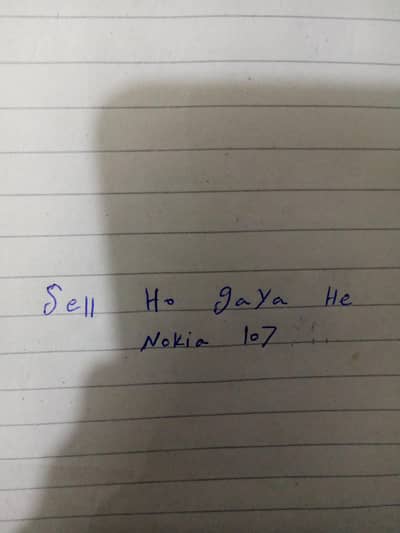 Sell Ho gaya He
Nokia 107